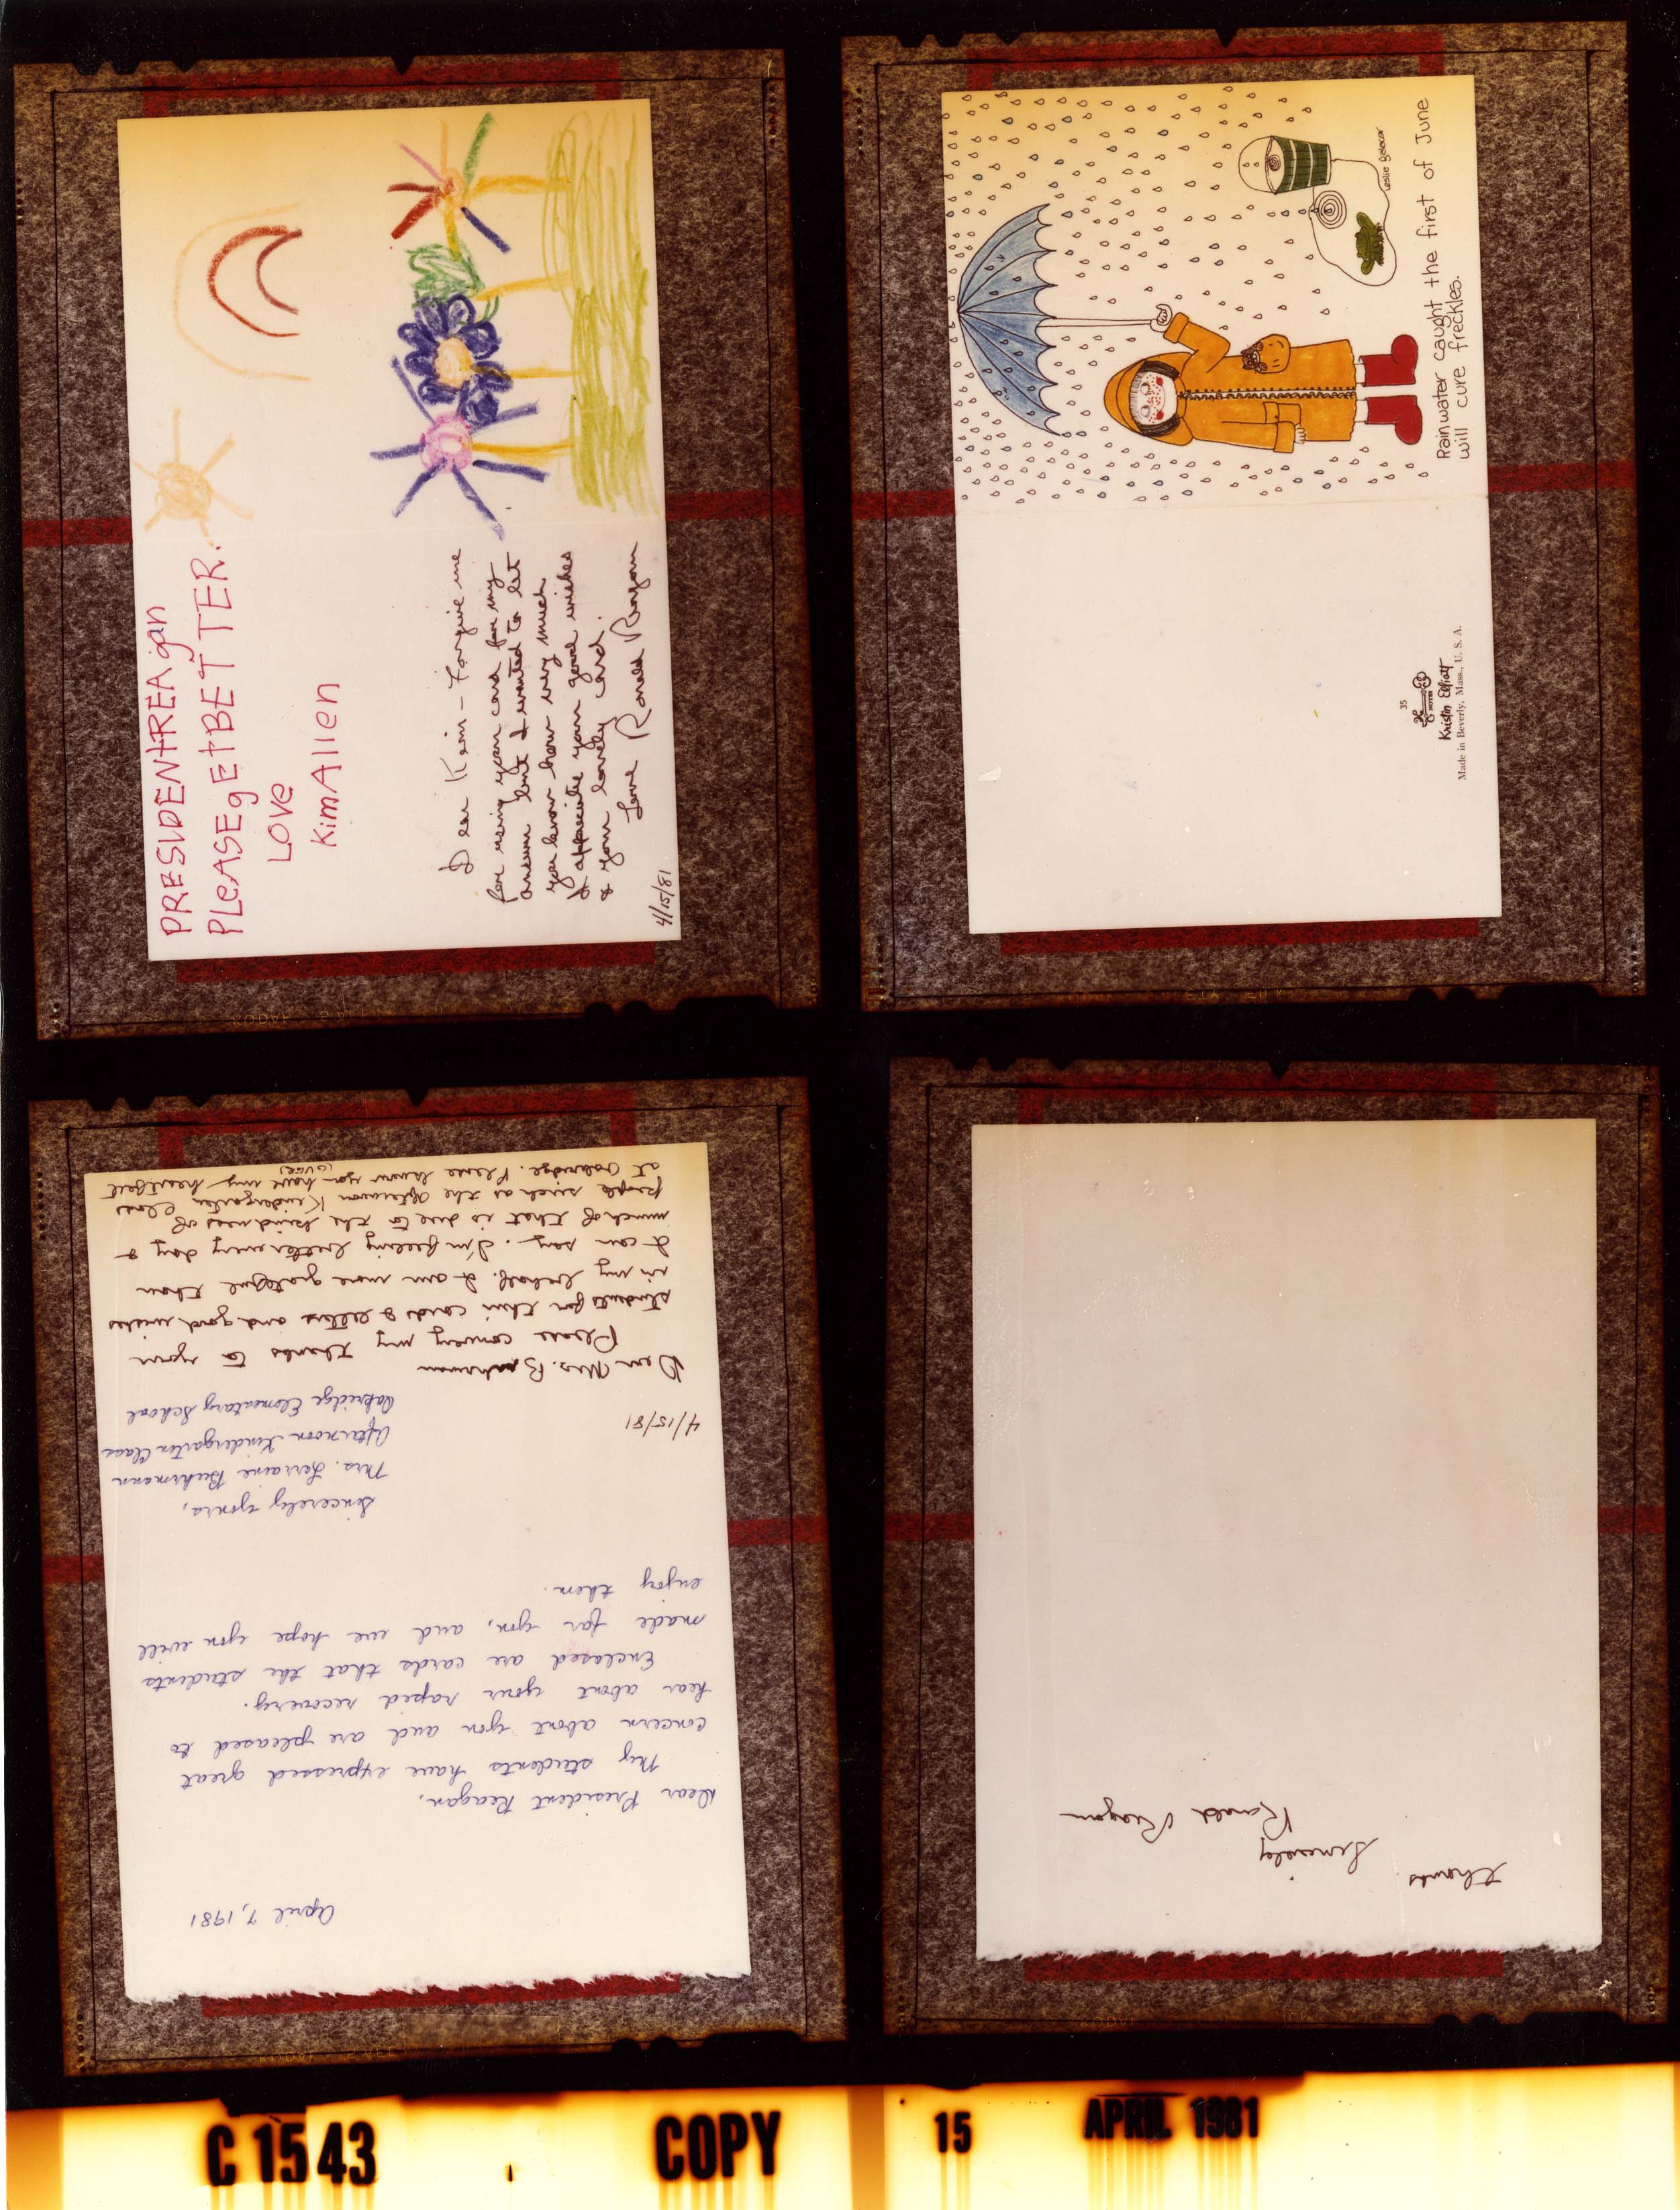 PRESIDENtREAgan
PLeASEgEtBETTER.
LOVe
KimAllen
Dear Kim – Forgive me
for using your card for my
answer but I wanted to let
you know how very much
I appreciate your good wishes
& your lovely card.
Love Ronald Reagan
4/15/81
Rainwater caught the first of June
will cure freckles.
35
NOTES
Kristin Elliott
Made in Beverly, Mass., U. S. A.
April 7, 1981
Dear President Reagan,
My students have expressed great
concern about you and are pleased to
hear about your rapid recovery.
Enclosed are cards that the students
made for you, and we hope you will
enjoy them.
Sincerely yours,
Mrs. Lorraine
Afternoon Kindergarten Class
Oakridge Elementary School
4/15/81
Dear Mrs.
Please convey my thanks to your
students for their cards & letters and good wishes
in my behalf. I am more grateful than
I can say. I'm feeling better every day &
much of that is due to the kindness of
people such as the Afternoon Kindergarten Class
at Oakridge. Please know you have my heartfelt
(over)
thanks.
Sincerely
Ronald Reagan
C 1543
COPY
15
APRIL 1981